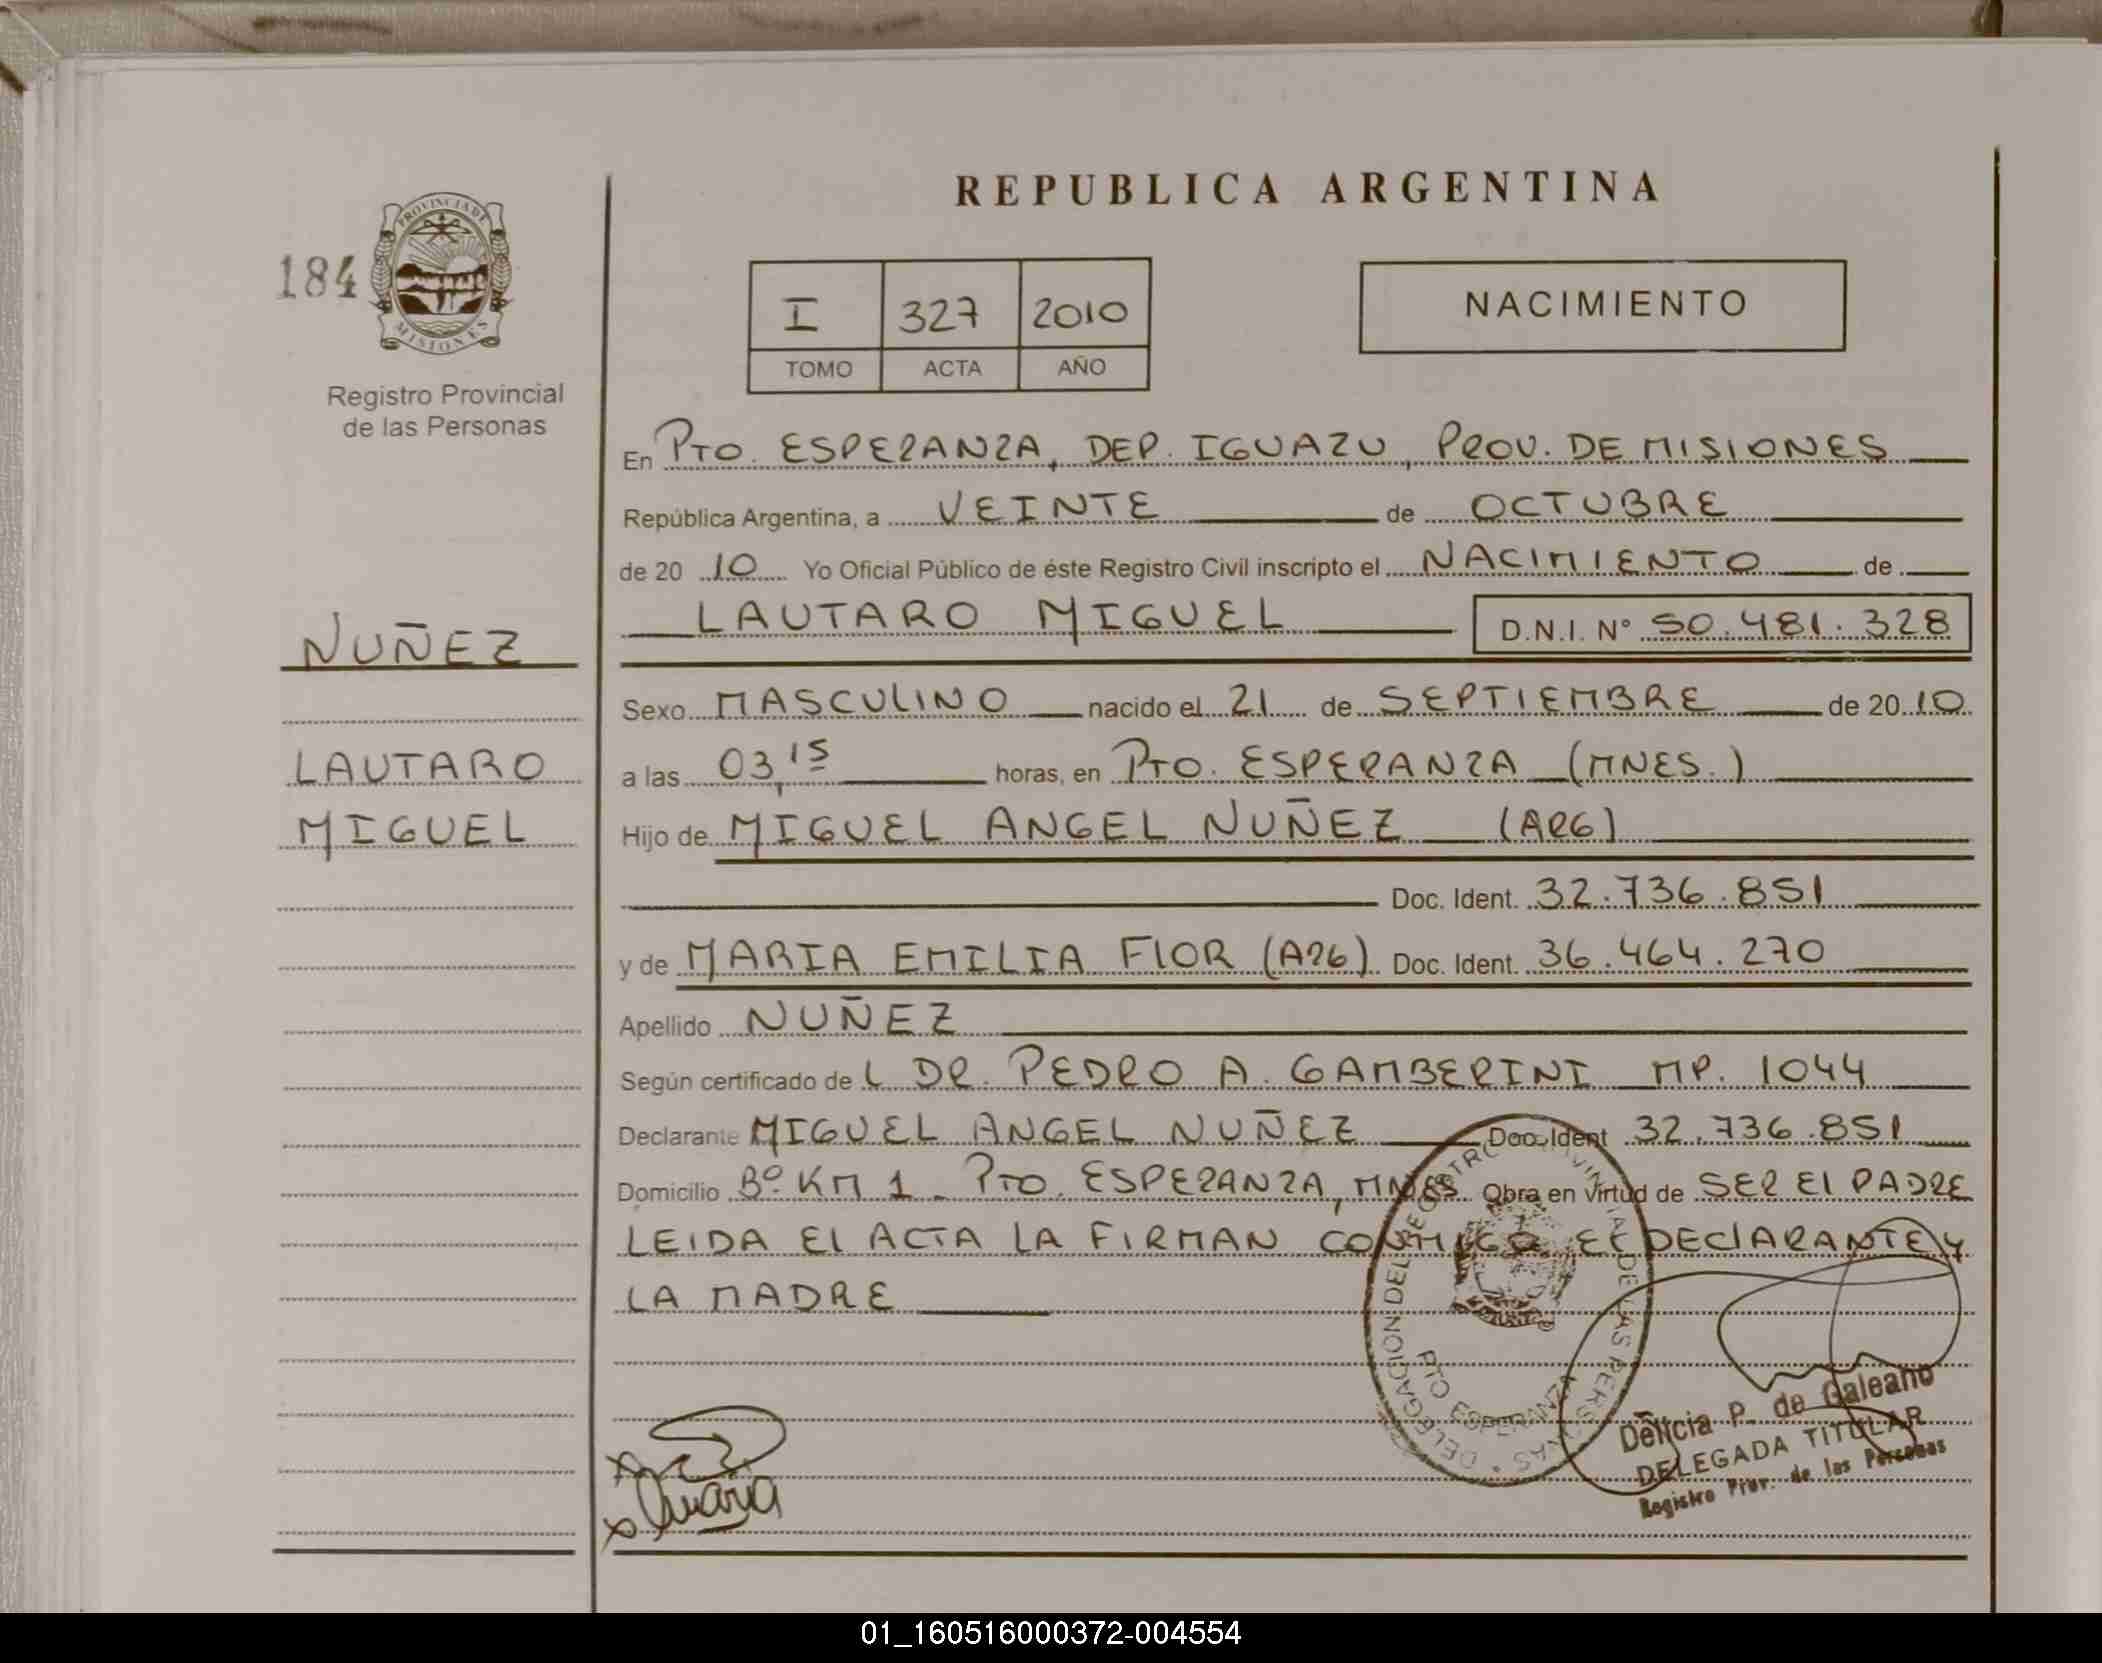 REPUBLICA ARGENTINA
184
PROVINCIA DE
MISIONES
Registro Provincial
de las Personas
I 327 2010
TOMO ACTA AÑO
NACIMIENTO
En PTO. ESPERANZA, DEP. IGUAZU, PROV. DE MISIONES
República Argentina, a VEINTE de OCTUBRE
de 20 10 Yo Oficial Público de éste Registro Civil inscripto el NACIMIENTO de
LAUTARO MIGUEL D.N.I. N° 50.481.328
NUÑEZ
LAUTARO
MIGUEL
Sexo MASCULINO nacido el 21 de SEPTIEMBRE de 20 10
a las 03,15 horas, en PTO. ESPERANZA (MNES.)
Hijo de MIGUEL ANGEL NUÑEZ (ARG)
Doc. Ident. 32.736.851
y de MARIA EMILIA FLOR (ARG) Doc. Ident. 36.464.270
Apellido NUÑEZ
Según certificado de L DR. PEDRO A. GAMBERINI MP. 1044
Declarante MIGUEL ANGEL NUÑEZ Doc. Ident 32.736.851
Domicilio Bº KM 1 - PTO. ESPERANZA, MNES Obra en virtud de SER El PADRE
LEIDA El ACTA LA FIRMAN CONMIGO El DEClARANTE y
LA MADRE
DELEGACION DEL REGISTRO PROVINCIAL DE LAS PERSONAS
PTO ESPERANZA
Delicia P. de Galeano
DELEGADA TITULAR
Registro Prov. de las Personas
x
x Maria
01_160516000372-004554